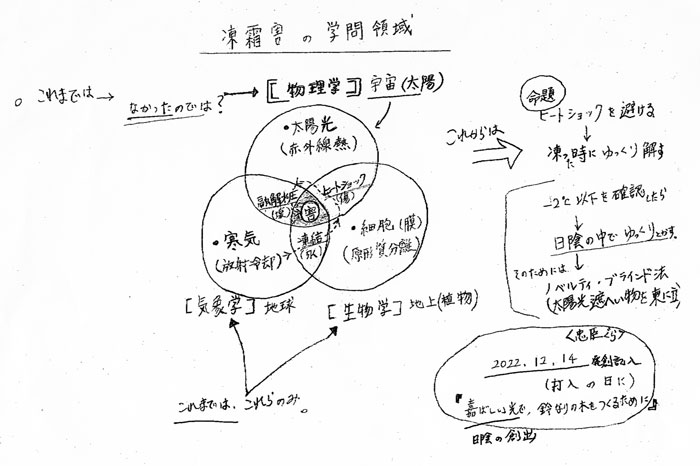 凍霜害の学問領域
○ これまでは→ なかったのでは?
[物理学] 宇宙(太陽)
・太陽光
(赤外線熱)
ヒートショック
(傷)
害
凍結
(氷)
・寒気
(放射冷却)
・細胞(膜)
(原形質分離)
[気象学] 地球
[生物学] 地上(植物)
これまでは、これらのみ。
これからは
命題
ヒートショックを避ける
凍った時にゆっくり解す
-2℃以下を確認したら
日陰の中でゆっくりとかす。
そのためには
ノベルティ・ブラインド法
(太陽光遮へい物を東に立
〈忠臣ぐら〉
2022.12.14
(打入の日に)
『嘉ばしい光で、鈴なりの木をつくるために』
日陰の創出